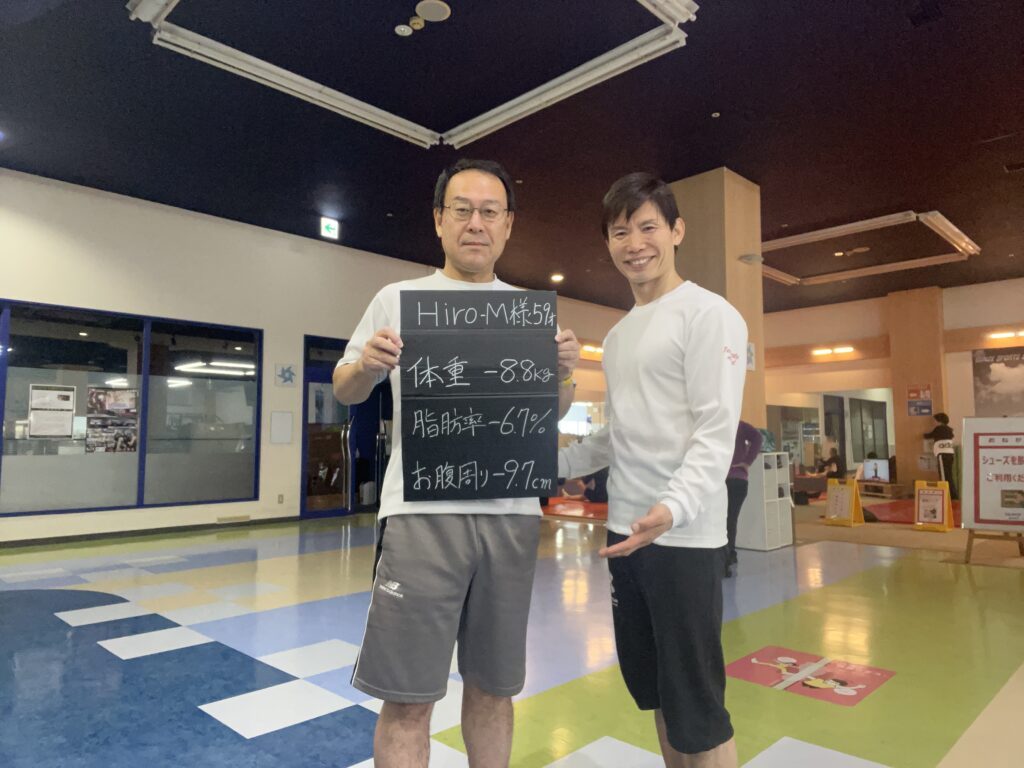 Hiro-M様59才
体重 -8.8kg
脂肪率-6.7%
お腹周り-9.7cm
シューズを
ご利用くだ